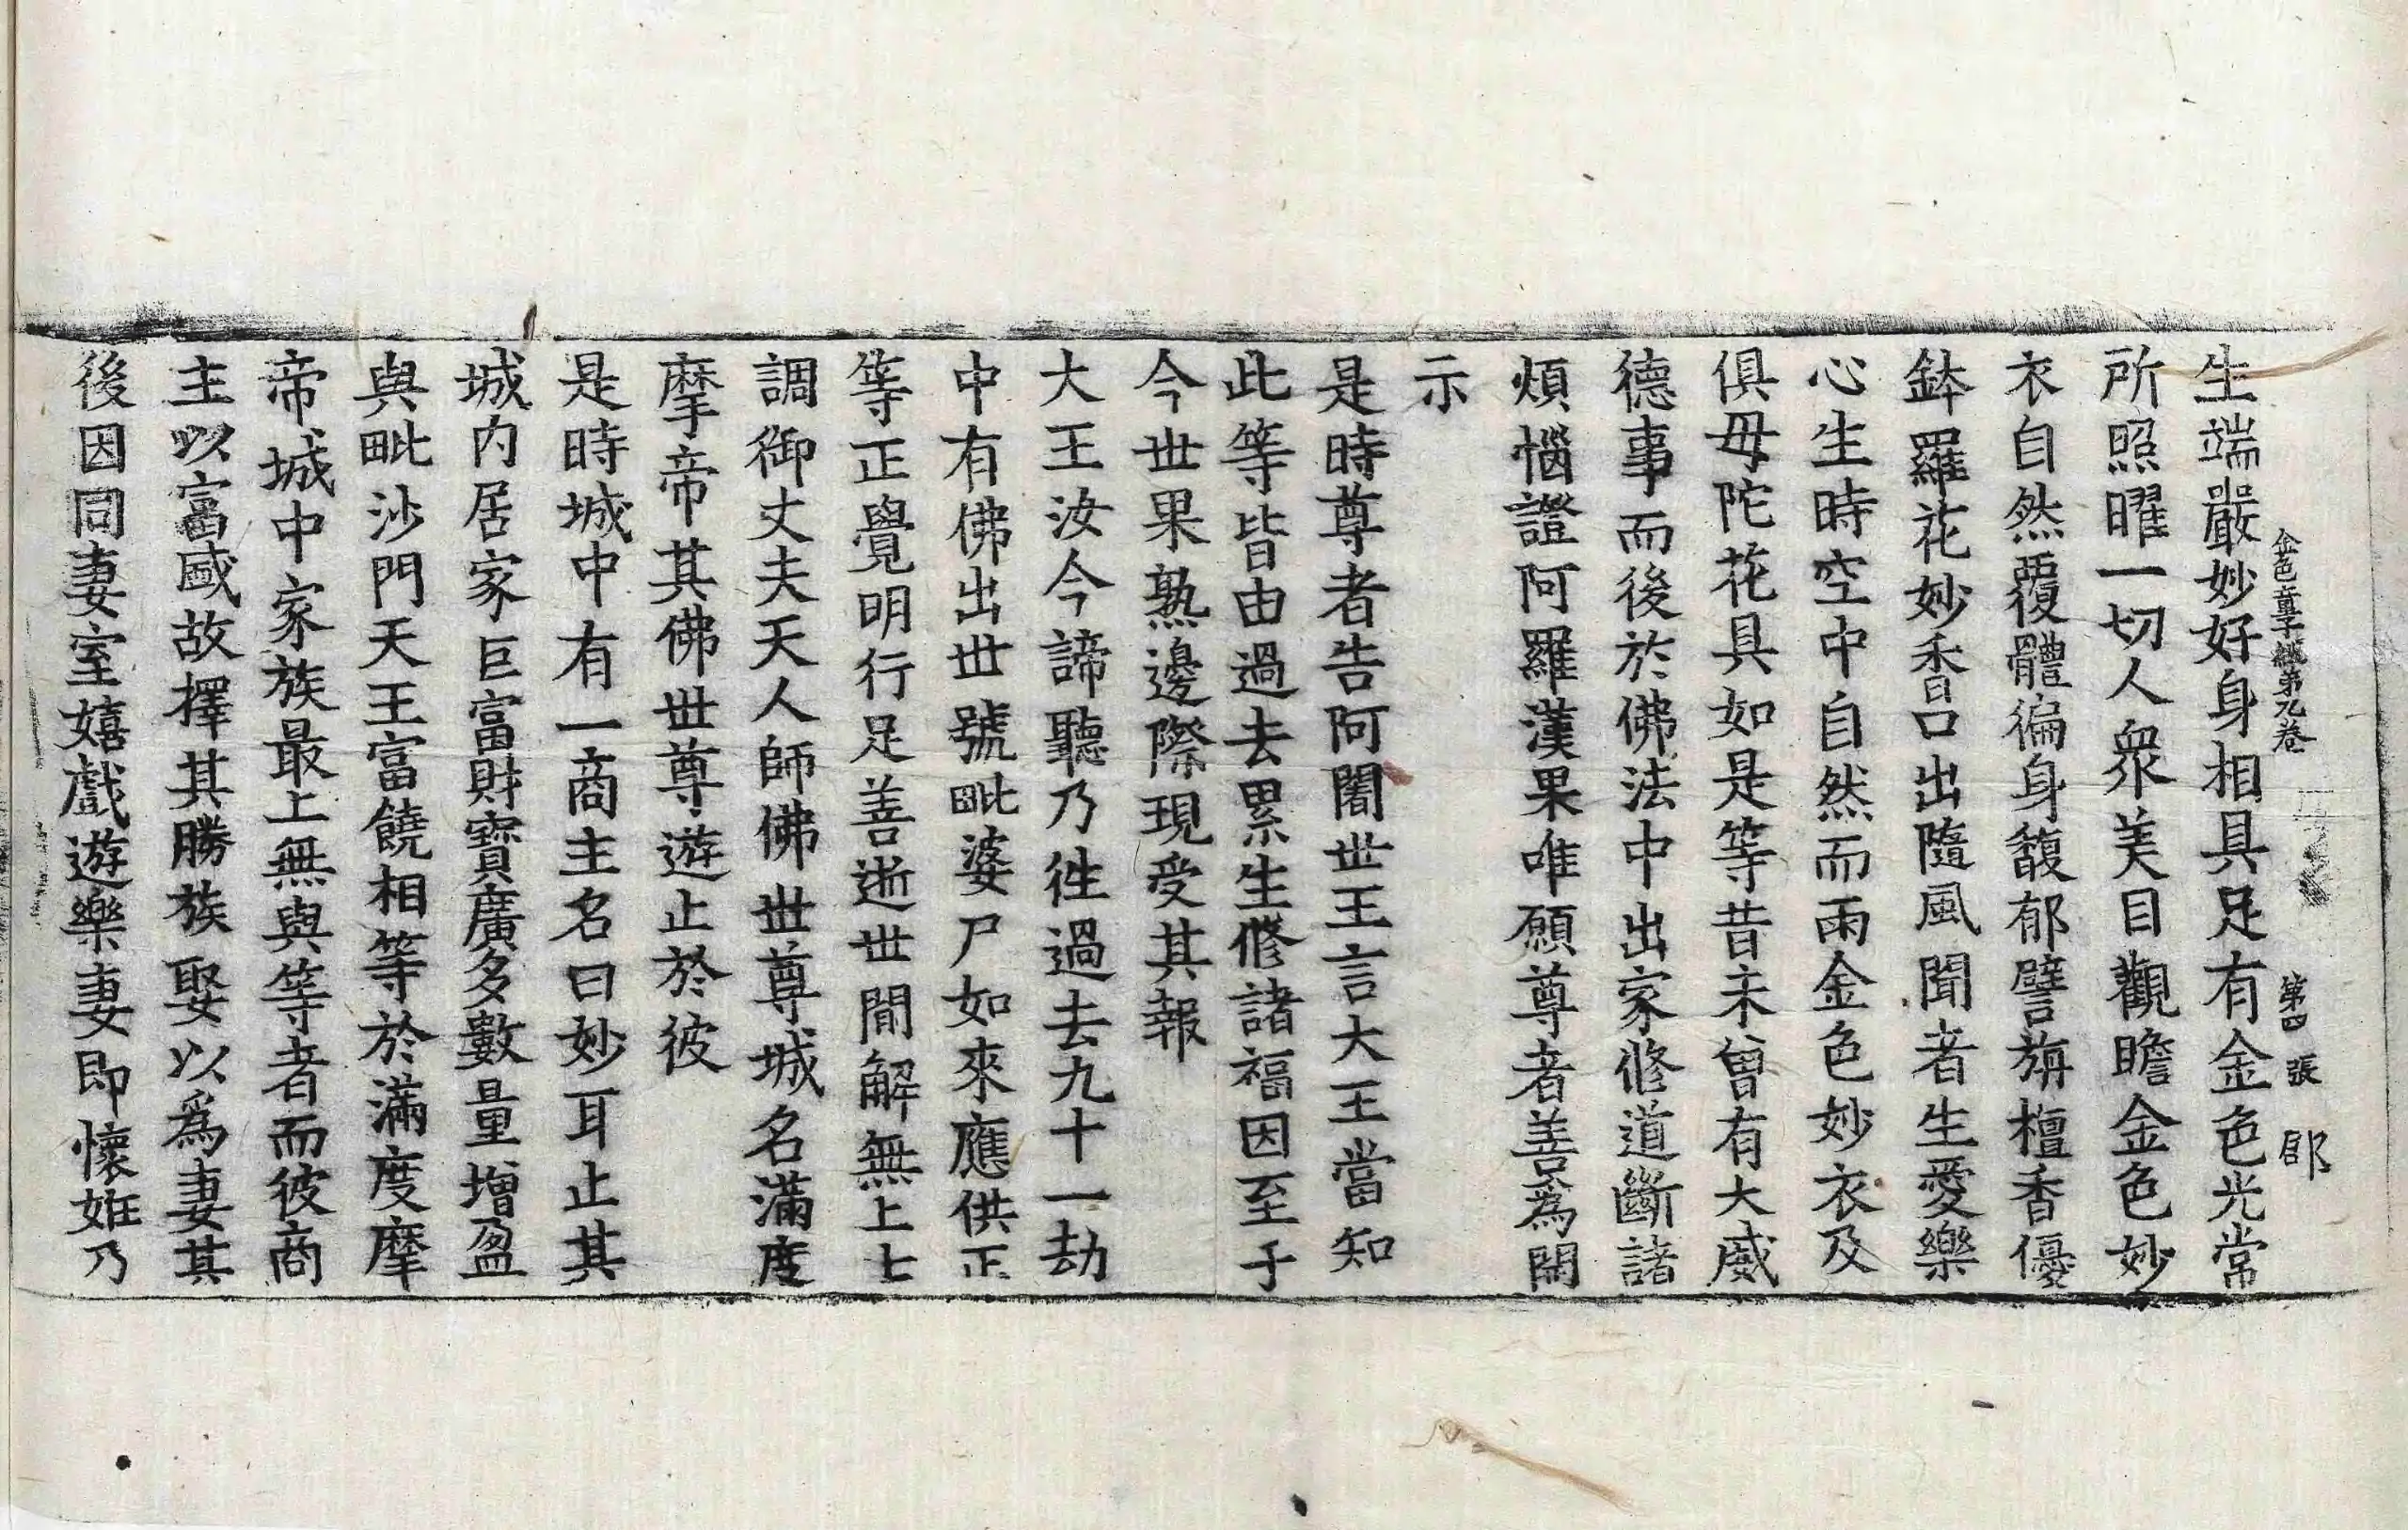 金色童子經第九卷 第四張 郎
生端嚴妙好身相具足有金色光常
所照曜一切人衆美目觀瞻金色妙
衣自然覆體徧身馥郁譬旃檀香優
鉢羅花妙香口出隨風聞者生愛樂
心生時空中自然而雨金色妙衣及
俱毋陀花具如是等昔未曾有大威
德事而後於佛法中出家修道斷諸
煩惱證阿羅漢果唯願尊者善爲開
示
是時尊者告阿闍世王言大王當知
此等皆由過去累生修諸福因至于
今世果熟邊際現受其報
大王汝今諦聽乃徃過去九十一劫
中有佛出世號毗婆尸如來應供正
等正覺明行足善逝世間解無上士
調御丈夫天人師佛世尊城名滿度
摩帝其佛世尊遊止於彼
是時城中有一商主名曰妙耳止其
城內居家巨富財寶廣多數量增盈
與毗沙門天王富饒相等於滿度摩
帝城中家族最上無與等者而彼商
主以富盛故擇其勝族娶以爲妻其
後因同妻室嬉戲遊樂妻即懷姙乃